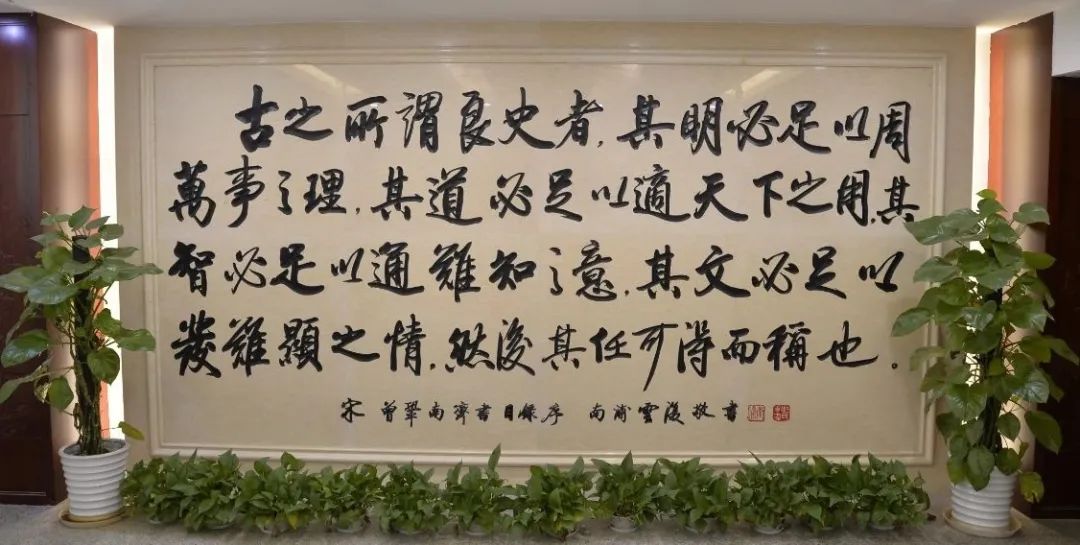 古之所謂良史者，其明必足以周
萬事之理，其道必足以適天下之用，其
智必足以通難知之意，其文必足以
發難顯之情，然後其任可得而稱也。
宋 曾鞏南齊書目錄序 南浦雲後敬書